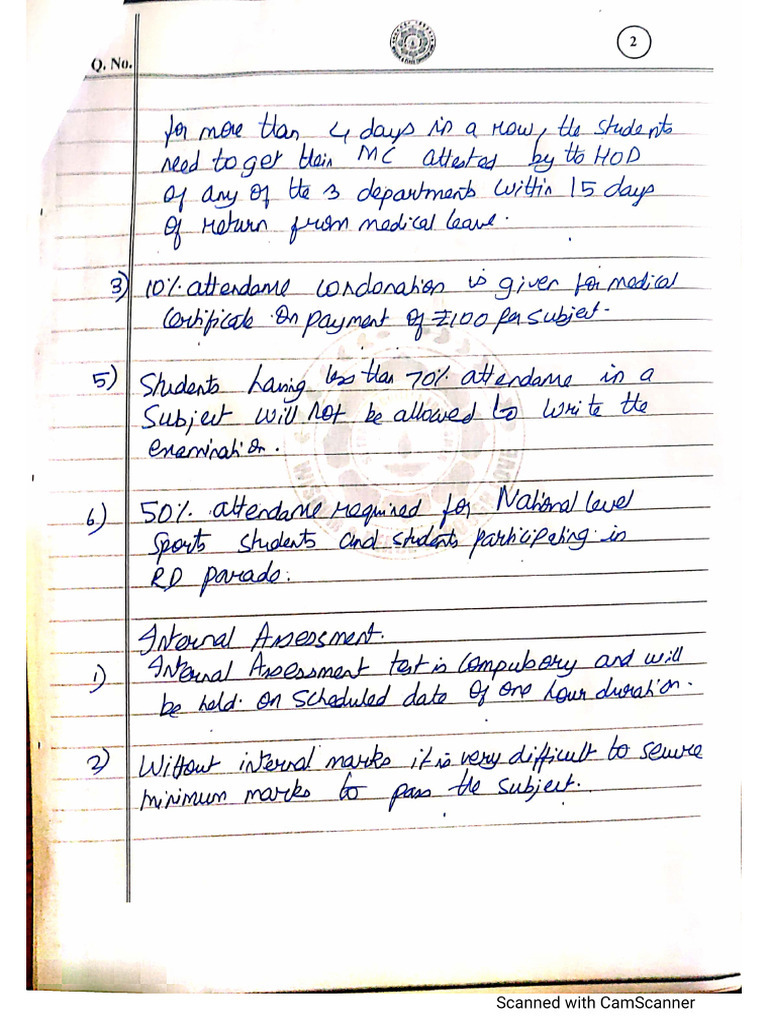 Q. No.
2
for more than 4 days in a row, the students
need to get their MC attested by the HOD
of any of the 3 departments within 15 days
of return from medical leave.
3) 10% attendance condonation is given for medical
certificate on payment of ₹100 per subject.
5) Students having less than 70% attendance in a
subject will not be allowed to write the
examination.
6) 50% attendance required for National level
sports students and students participating in
RD parade.
Internal Assessment.
1) Internal Assessment test is compulsory and will
be held on scheduled date of one hour duration.
2) Without internal marks it is very difficult to secure
minimum marks to pass the subject.
Scanned with CamScanner